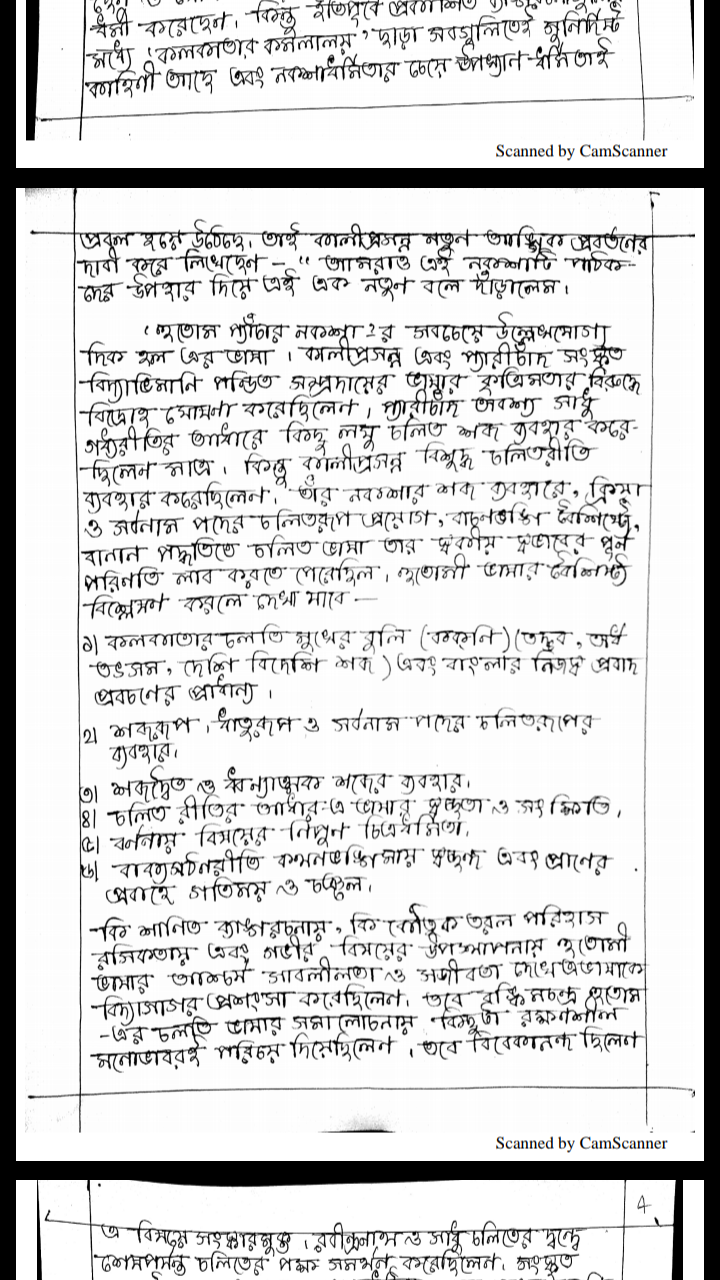 ধর্মী করেছেন। কিন্তু ইতিপূর্বে প্রকাশিত
মধ্যে 'কলকাতার কমলালয়' ছাড়া সবগুলিতেই সুনির্দিষ্ট
কাহিনী আছে এবং নকশাধর্মিতার চেয়ে উপখ্যান-ধর্মিতাই
Scanned by CamScanner
প্রবল হয়ে উঠেছে। তাই কালীপ্রসন্ন নতুন আঙ্গিক প্রবর্তনের
দাবী করে লিখেছেন – "আমরাও এই নকশাটি পাঠক-
দের উপহার দিয়ে এই এক নতুন বলে দাঁড়ালেম।
'হুতোম প্যাঁচার নকশা'র সবচেয়ে উল্লেখযোগ্য
দিক হল এর ভাষা। কালীপ্রসন্ন এবং প্যারীচাঁদ সংস্কৃত
বিদ্যাভিমানি পন্ডিত সম্প্রদায়ের ভাষার কৃত্রিমতার বিরুদ্ধে
বিদ্রোহ ঘোষণা করেছিলেন। প্যারীচাঁদ অবশ্য সাধু
গদ্যরীতির আধারে কিছু লঘু চলিত শব্দ ব্যবহার করে-
ছিলেন মাত্র। কিন্তু কালীপ্রসন্ন বিশুদ্ধ চলিতরীতি
ব্যবহার করেছিলেন। তাঁর নকশার শব্দ ব্যবহারে, ক্রিয়া
ও সর্বনাম পদের চলিতরূপ প্রয়োগ, বাচনভঙ্গি বৈশিষ্ট্যে,
বানান পদ্ধতিতে চলিত ভাষা তার স্বকীয় স্বভাবের পূর্ন
পরিনতি লাব করতে পেরেছিল। হুতোমী ভাষার বৈশিষ্ট্য
বিশ্লেষণ করলে দেখা যাবে —
১) কলকাতার চলতি মুখের বুলি (ককনি) (তদ্ভব, অর্ধ
তৎসম, দেশি বিদেশি শব্দ) এবং বাংলার নিজস্ব প্রবাদ
প্রবচণের প্রাধান্য।
২) শব্দরূপ, ধাতুরূপ ও সর্বনাম পদের চলিতরূপের
ব্যবহার।
৩) শব্দদ্বৈত ও ধ্বন্যাত্মক শব্দের ব্যবহার।
৪) চলিত রীতির আধার-এ ভাষার স্বচ্ছতা ও সংক্ষিপ্তি।
৫) বর্ননায় বিষয়ের নিপুন চিত্রধর্মিতা।
৬) বাক্যগঠনরীতি কথনভঙ্গিমায় স্বচ্ছন্দ এবং প্রাণের
প্রবাহে গতিময় ও চঞ্চল।
কি শানিত ব্যাঙ্গরচনায়, কি কৌতুক তরল পরিহাস
রসিকতায় এবং গভীর বিষয়ের উপস্থাপনায় হুতোমী
ভাষার আশ্চর্য সাবলীলতা ও সজীবতা দেখে এভাষাকে
বিদ্যাসাগর প্রশংসা করেছিলেন। তবে বঙ্কিমচন্দ্র হুতোম
-এর চলতি ভাষার সমালোচনায় কিছুটা রক্ষণশীল
মনোভাবরই পরিচয় দিয়েছিলেন। তবে বিবেকানন্দ ছিলেন
Scanned by CamScanner
4
এ বিষয়ে সংস্কারমুক্ত। রবীন্দ্রনাথ ও সাধু চলিতের দ্বন্দ্বে
শেষপর্যন্ত চলিতের পক্ষ সমর্থন করেছিলেন। সংস্কৃত